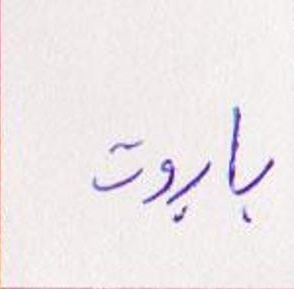 باروت